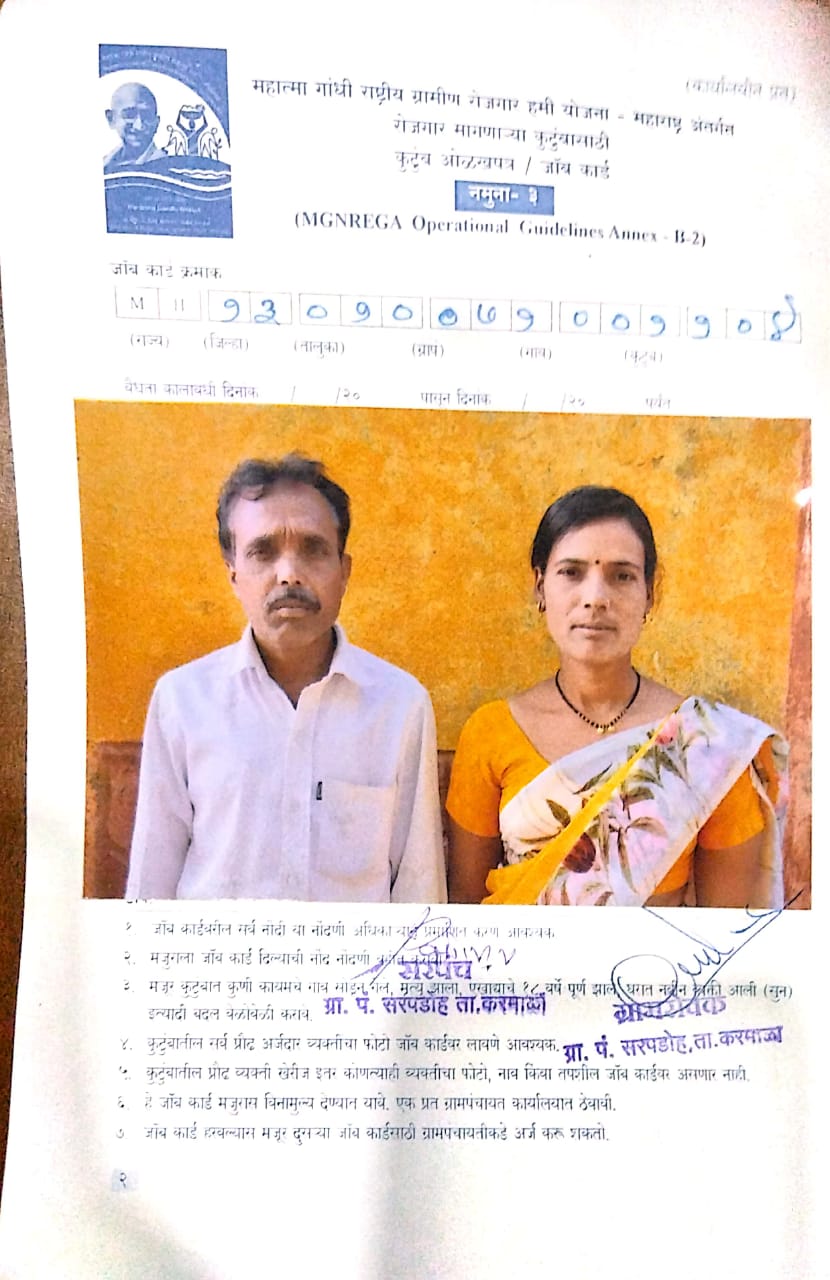 (कार्यालयीन प्रत)
महात्मा गांधी राष्ट्रीय ग्रामीण रोजगार हमी योजना - महाराष्ट्र अंतर्गत
रोजगार मागणाऱ्या कुटुंबासाठी
कुटुंब ओळखपत्र / जॉब कार्ड
नमुना- ३
(MGNREGA Operational Guidelines Annex - B-2)
जॉब कार्ड क्रमांक
M H १३ ०१० ०७१ ००११०४
(राज्य) (जिल्हा) (तालुका) (ग्रापं) (गाव) (कुटुंब)
वैधता कालावधी दिनांक / /२० पासून दिनांक / /२० पर्यंत
१. जॉब कार्डवरील सर्व नोंदी या नोंदणी प्रमाणित करणे आवश्यक
२. मजुराला जॉब कार्ड दिल्याची नोंद नोंदणी
सरपंच
३. मजूर कुटुंबात कुणी कायमचे गाव सोडून गेले, मृत्यू झाला, एखाद्याचे १८ वर्षे पूर्ण झाले, घरात नवीन व्यक्ती आली (सुन)
इत्यादी बदल वेळोवेळी करावे.
ग्रा. पं. सरपडोह ता.करमाळा
ग्रामसेवक
४. कुटुंबातील सर्व प्रौढ अर्जदार व्यक्तींचा फोटो जॉब कार्डवर लावणे आवश्यक.
ग्रा. पं. सरपडोह,ता.करमाळा
५. कुटुंबातील प्रौढ व्यक्ती खेरीज इतर कोणत्याही व्यक्तीचा फोटो, नाव किंवा तपशील जॉब कार्डवर असणार नाही.
६. हे जॉब कार्ड मजुरास विनामुल्य देण्यात यावे. एक प्रत ग्रामपंचायत कार्यालयात ठेवावी.
७. जॉब कार्ड हरवल्यास मजूर दुसऱ्या जॉब कार्डसाठी ग्रामपंचायतीकडे अर्ज करू शकतो.
२